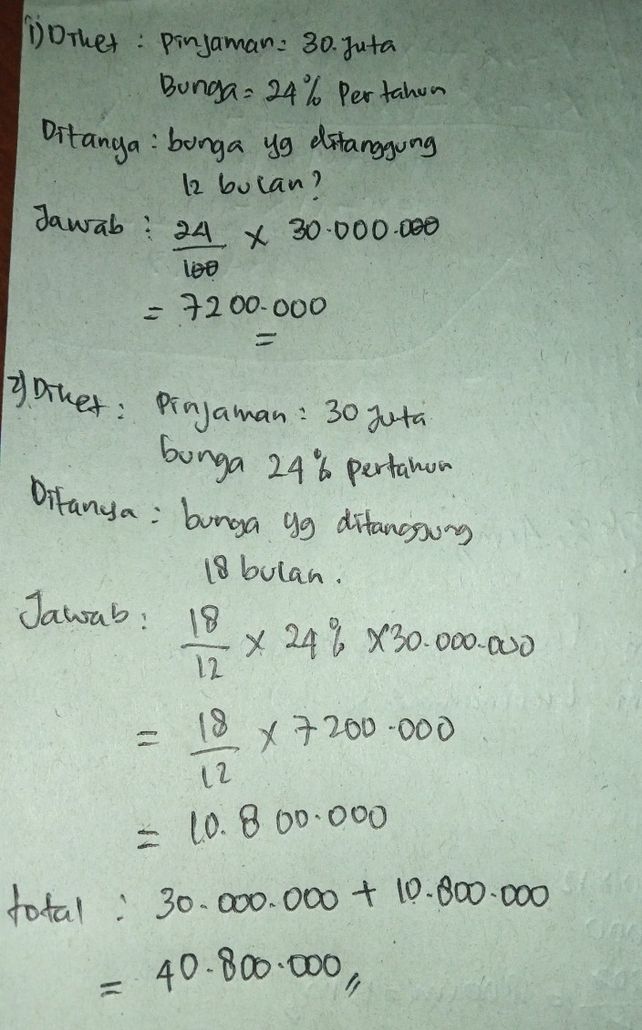 1) Diket : Pinjaman = 30 Juta
Bunga = 24% Per tahun
Ditanya : bunga yg ditanggung
12 bulan?
Jawab : 24/100 × 30.000.000
= 7200.000
=
2) Diket : Pinjaman : 30 Juta
bunga 24% pertahun
Ditanya : bunga yg ditanggung
18 bulan.
Jawab : 18/12 × 24% × 30.000.000
= 18/12 × 7200.000
= 10.800.000
total : 30.000.000 + 10.800.000
= 40.800.000,,